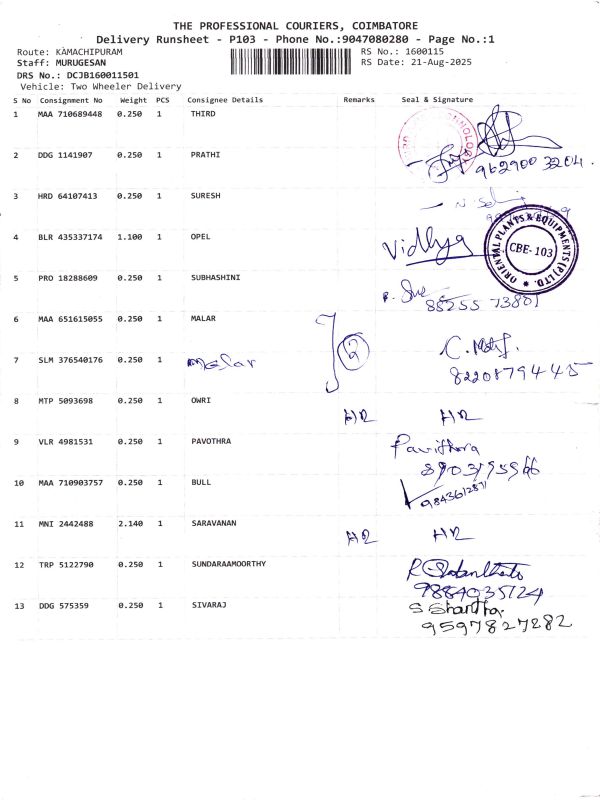 THE PROFESSIONAL COURIERS, COIMBATORE
Delivery Runsheet - P103 - Phone No.:9047080280 - Page No.:1
Route: KAMACHIPURAM RS No.: 1600115
Staff: MURUGESAN RS Date: 21-Aug-2025
DRS No.: DCJB160011501
Vehicle: Two Wheeler Delivery
S No Consignment No Weight PCS Consignee Details Remarks Seal & Signature
1 MAA 710689448 0.250 1 THIRD
2 DDG 1141907 0.250 1 PRATHI 962900 3204.
3 HRD 64107413 0.250 1 SURESH
4 BLR 435337174 1.100 1 OPEL Vidhya
ORIENTAL PLANTS & EQUIPMENTS (P) LTD.
CBE-103
5 PRO 18288609 0.250 1 SUBHASHINI
88255 73801
6 MAA 651615055 0.250 1 MALAR 2
7 SLM 376540176 0.250 1 Malar
8220879445
8 MTP 5093698 0.250 1 OWRI
9 VLR 4981531 0.250 1 PAVOTHRA Pavithra
8903795966
10 MAA 710903757 0.250 1 BULL
9843612871
11 MNI 2442488 2.140 1 SARAVANAN
12 TRP 5122790 0.250 1 SUNDARAAMOORTHY
9884035124
13 DDG 575359 0.250 1 SIVARAJ S Shantha.
9597827282